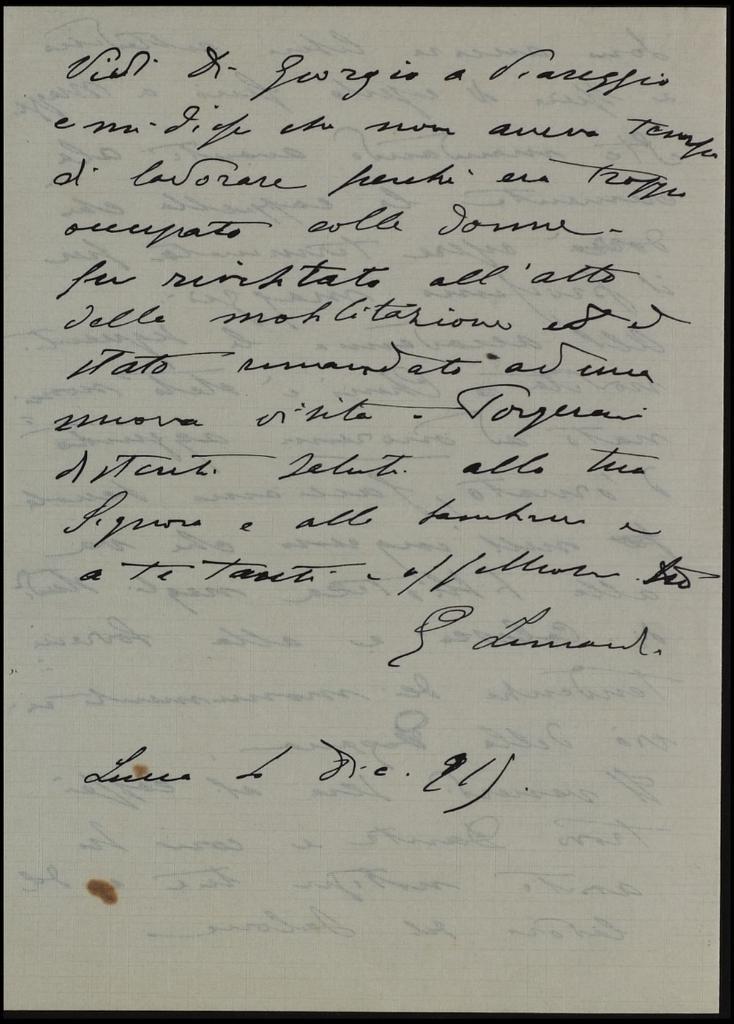 Vidi Di Giorgio a Viareggio
e mi disse che non aveva tempo
di lavorare perchè era troppo
occupato colle donne -
fu rivisitato all'atto
della mobilitazione ed è
stato rimandato ad una
nuova visita - Porgerai
distinti saluti alla tua
Signora e alle bambine e
a te tanti e aff
G
Lucca Dic. 915.